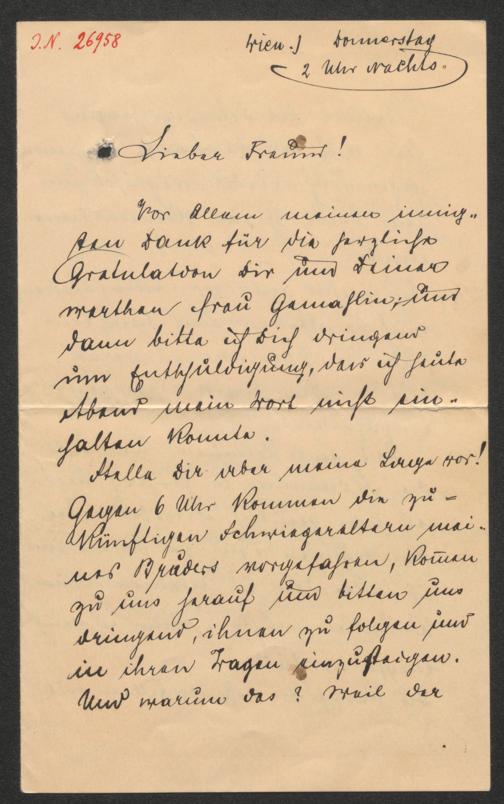 I.N. 26958
Wien.) Donnerstag
2 Uhr Nachts.
Lieber Freund!
Vor Allem meinen innig-
sten Dank für die herzliche
Gratulation Dir und Deiner
werthen Frau Gemahlin; und
dann bitte ich Dich dringend
um Entschuldigung, dass ich heute
Abend mein Wort nicht ein-
halten konnte.
Stelle Dir aber meine Lage vor!
Gegen 6 Uhr kommen die zu-
künftigen Schwiegereltern mei-
nes Bruders vorgefahren, kom̅en
zu uns herauf und bitten uns
dringend, ihnen zu folgen und
in ihren Wagen einzusteigen.
Und warum das? Weil der